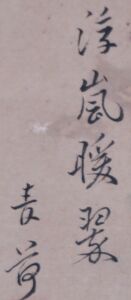 浮嵐暖翠
青荷